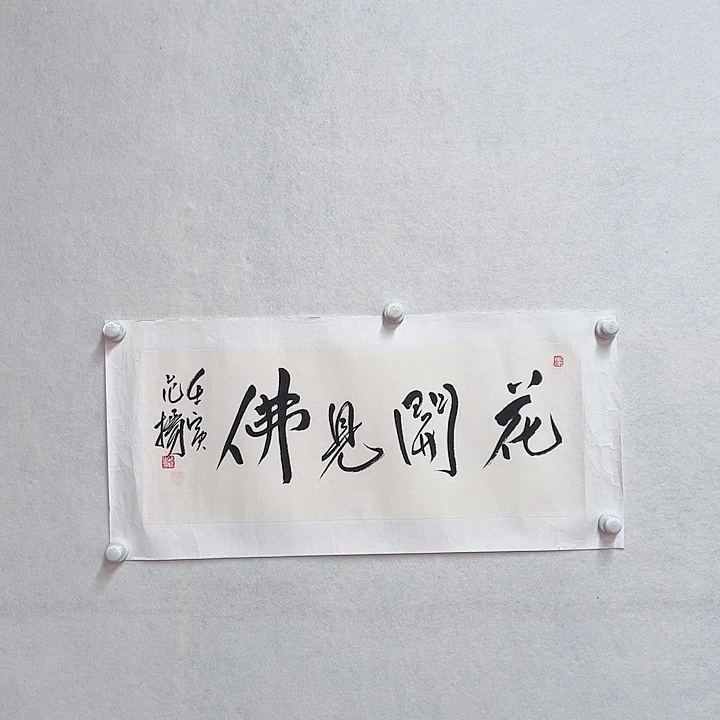 花開見佛
壬寅
范